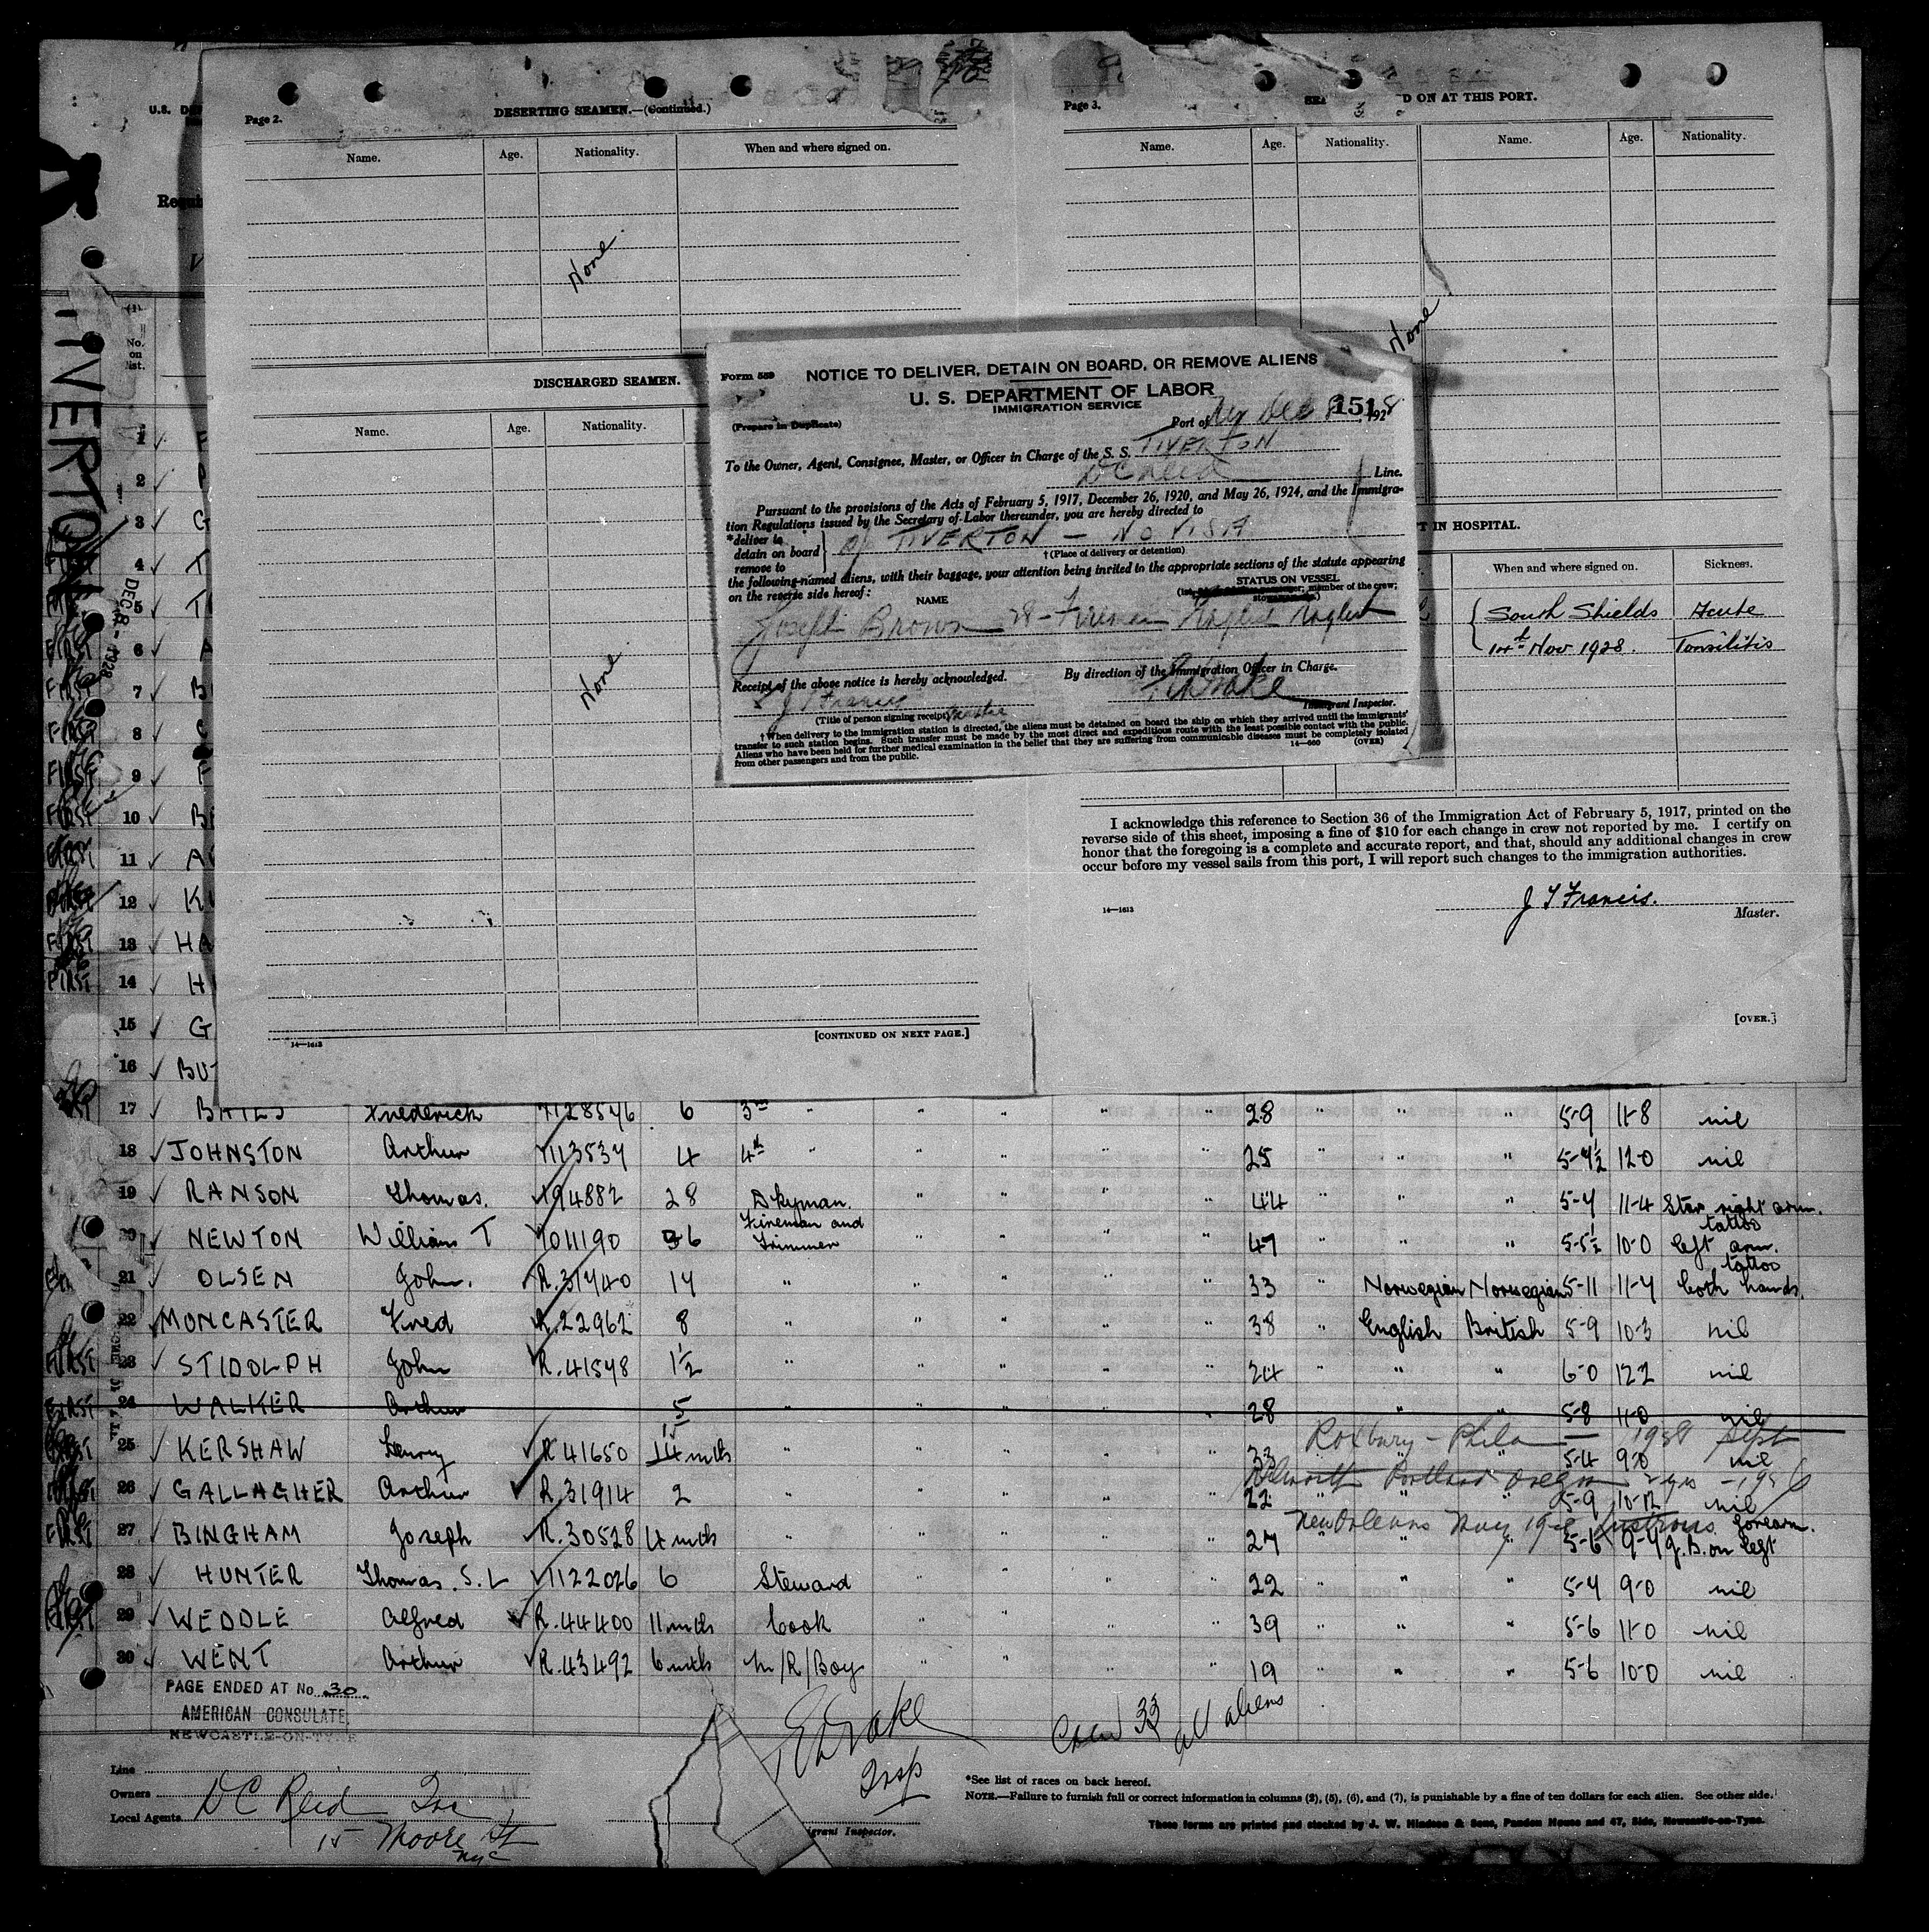 U.S.
Requi
No. on list.
TIVERTON
DEC 8 - 1928
Page 2.
DESERTING SEAMEN.—(Continued.)
Name. Age. Nationality. When and where signed on.
None
DISCHARGED SEAMEN.
Name. Age. Nationality.
None
[CONTINUED ON NEXT PAGE.]
14—1613
Page 3.
D ON AT THIS PORT.
Name. Age. Nationality. Name. Age. Nationality.
None
T IN HOSPITAL.
When and where signed on. Sickness.
South Shields Acute
Nov 1928. Tonsilitis
I acknowledge this reference to Section 36 of the Immigration Act of February 5, 1917, printed on the
reverse side of this sheet, imposing a fine of $10 for each change in crew not reported by me. I certify on
honor that the foregoing is a complete and accurate report, and that, should any additional changes in crew
occur before my vessel sails from this port, I will report such changes to the immigration authorities.
J T Francis.
14—1613
Master.
[OVER.]
Form 559
NOTICE TO DELIVER, DETAIN ON BOARD, OR REMOVE ALIENS
U. S. DEPARTMENT OF LABOR
IMMIGRATION SERVICE
(Prepare in Duplicate)
Port of NY Dec 8 151, 1928
To the Owner, Agent, Consignee, Master, or Officer in Charge of the S. S. TIVERTON
DC Reid Line.
Pursuant to the provisions of the Acts of February 5, 1917, December 26, 1920, and May 26, 1924, and the Immigra-
tion Regulations issued by the Secretary of Labor thereunder, you are hereby directed to
*deliver to
detain on board
remove to
TIVERTON — NO VISA
†(Place of delivery or detention)
the following-named aliens, with their baggage, your attention being invited to the appropriate sections of the statute appearing
on the reverse side hereof:
NAME
STATUS ON VESSEL
member of the crew;
Joseph Brown 28 - Fireman
Receipt of the above notice is hereby acknowledged.
By direction of the Immigration Officer in Charge.
J T Francis
Immigrant Inspector.
(Title of person signing receipt) Master
†When delivery to the immigration station is directed, the aliens must be detained on board the ship on which they arrived until the immigrants'
transfer to such station begins. Such transfer must be made by the most direct and expeditious route with the least possible contact with the public.
Aliens who have been held for further medical examination in the belief that they are suffering from communicable diseases must be completely isolated
from other passengers and from the public.
14—660 (OVER)
1
2
3 G
4 T
5 T
6 A
7 B
8
9 F
10 BE
11 A
12 K
13 HA
14 H
15 G
16 BU
17 Frederick 1128546 6 3rd " " " " " 28 " " " 5-9 11-8 nil
18 JOHNSTON Arthur 1113537 4 4th " " " " " 25 " " " 5-7½ 12-0 nil
19 RANSON Thomas. 794882 28 Dkyman. " " " " 44 " " " 5-7 11-4 Star right arm.
20 NEWTON William T 701190 36 Fireman and Trimmer " " " " 47 " " " 5-5½ 10-0 tattoo left arm.
21 OLSEN John. R.31740 17 " " " " " 33 " Norwegian Norwegian 5-11 11-7 tattoo both hands.
22 MONCASTER Fred R.22962 8 " " " " " 38 " English British 5-9 10-3 nil
23 STIDOLPH John R.41578 1½ " " " " " 24 " " " 6-0 12-2 nil
24 WALKER Arthur 5 " " " " " 28 " " " 5-8 11-0 nil
Roxbury - Phila — Sept
25 KERSHAW Henry R 41650 14 mths " " " " " 33 " " " 5-4 9-0 nil
Portland Oregon
26 GALLAGHER Arthur R.31914 2 " " " " " 22 " " " 5-9 10-12 nil
New Orleans
27 BINGHAM Joseph R.30528 4 mths " " " " " 27 " " " 5-6 9-7 J.B. on left forearm.
28 HUNTER Thomas. S. L 1122026 6 Steward " " " " 22 " " " 5-7 9-0 nil
29 WEDDLE Alfred R.44400 11 mths Cook " " " " 39 " " " 5-6 11-0 nil
30 WENT Arthur R.43492 6 mths M/R/Boy " " " " 19 " " " 5-6 10-0 nil
PAGE ENDED AT No. 30
AMERICAN CONSULATE
NEWCASTLE-ON-TYNE
Drake
Insp
Crew 33 all aliens
Line
Owners
Local Agents DC Reid Inc
15 Moore St
NYC
grant Inspector.
*See list of races on back hereof.
NOTE.—Failure to furnish full or correct information in columns (2), (5), (6), and (7), is punishable by a fine of ten dollars for each alien. See other side.
These forms are printed and stocked by J. W. Hindson & Sons, Pandon House and 47, Side, Newcastle-on-Tyne.